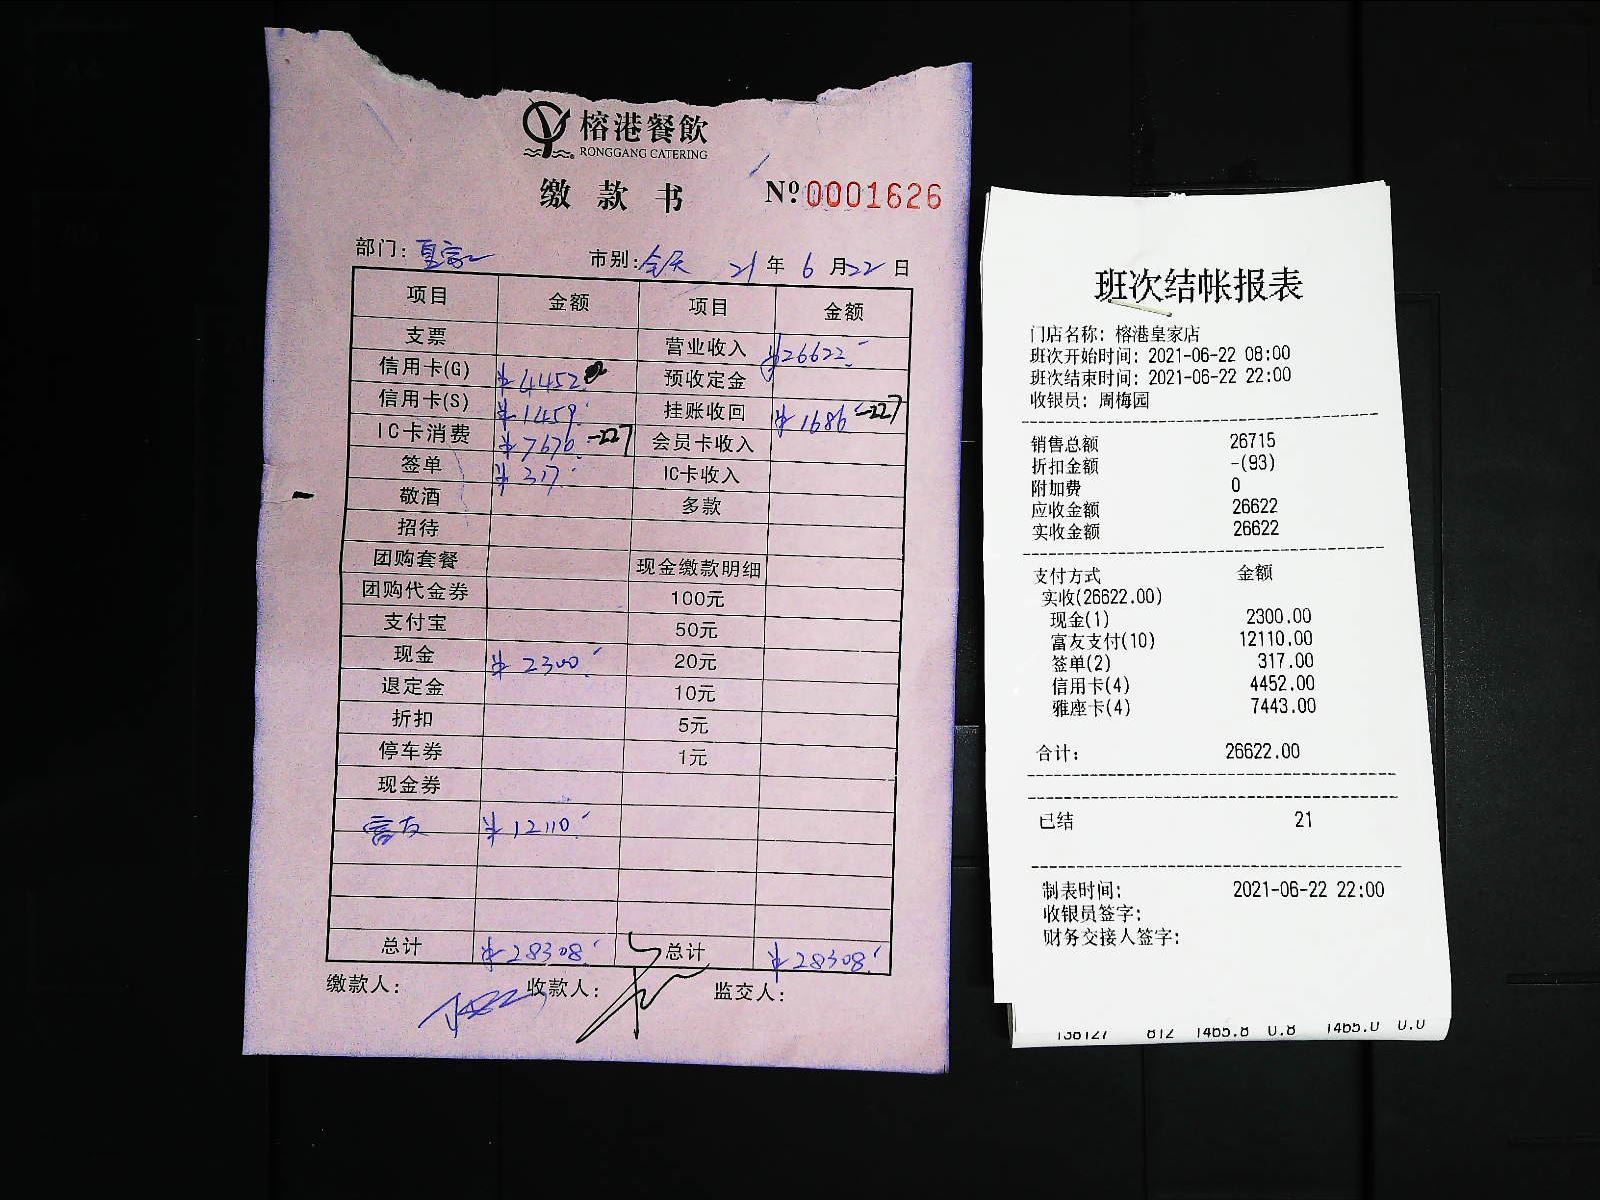 榕港餐飲
RONGGANG CATERING
缴款书 Nº0001626
部门: 皇家 市别: 全天 21年6月22日
项目 金额 项目 金额
支票 营业收入 ¥26622
信用卡(G) ¥4452 预收定金
信用卡(S) ¥1459 挂账收回 ¥1686 -227
IC卡消费 ¥7670 -227 会员卡收入
签单 ¥317 IC卡收入
敬酒 多款
招待
团购套餐 现金缴款明细
团购代金券 100元
支付宝 50元
现金 ¥2300 20元
退定金 10元
折扣 5元
停车券 1元
现金券
富友 ¥12110
总计 ¥28308 总计 ¥28308
缴款人: 收款人: 监交人:
班次结帐报表
门店名称: 榕港皇家店
班次开始时间: 2021-06-22 08:00
班次结束时间: 2021-06-22 22:00
收银员: 周梅园
销售总额 26715
折扣金额 -(93)
附加费 0
应收金额 26622
实收金额 26622
支付方式 金额
实收(26622.00)
现金(1) 2300.00
富友支付(10) 12110.00
签单(2) 317.00
信用卡(4) 4452.00
雅座卡(4) 7443.00
合计: 26622.00
已结 21
制表时间: 2021-06-22 22:00
收银员签字:
财务交接人签字:
138127 812 1465.8 0.8 1465.0 0.0